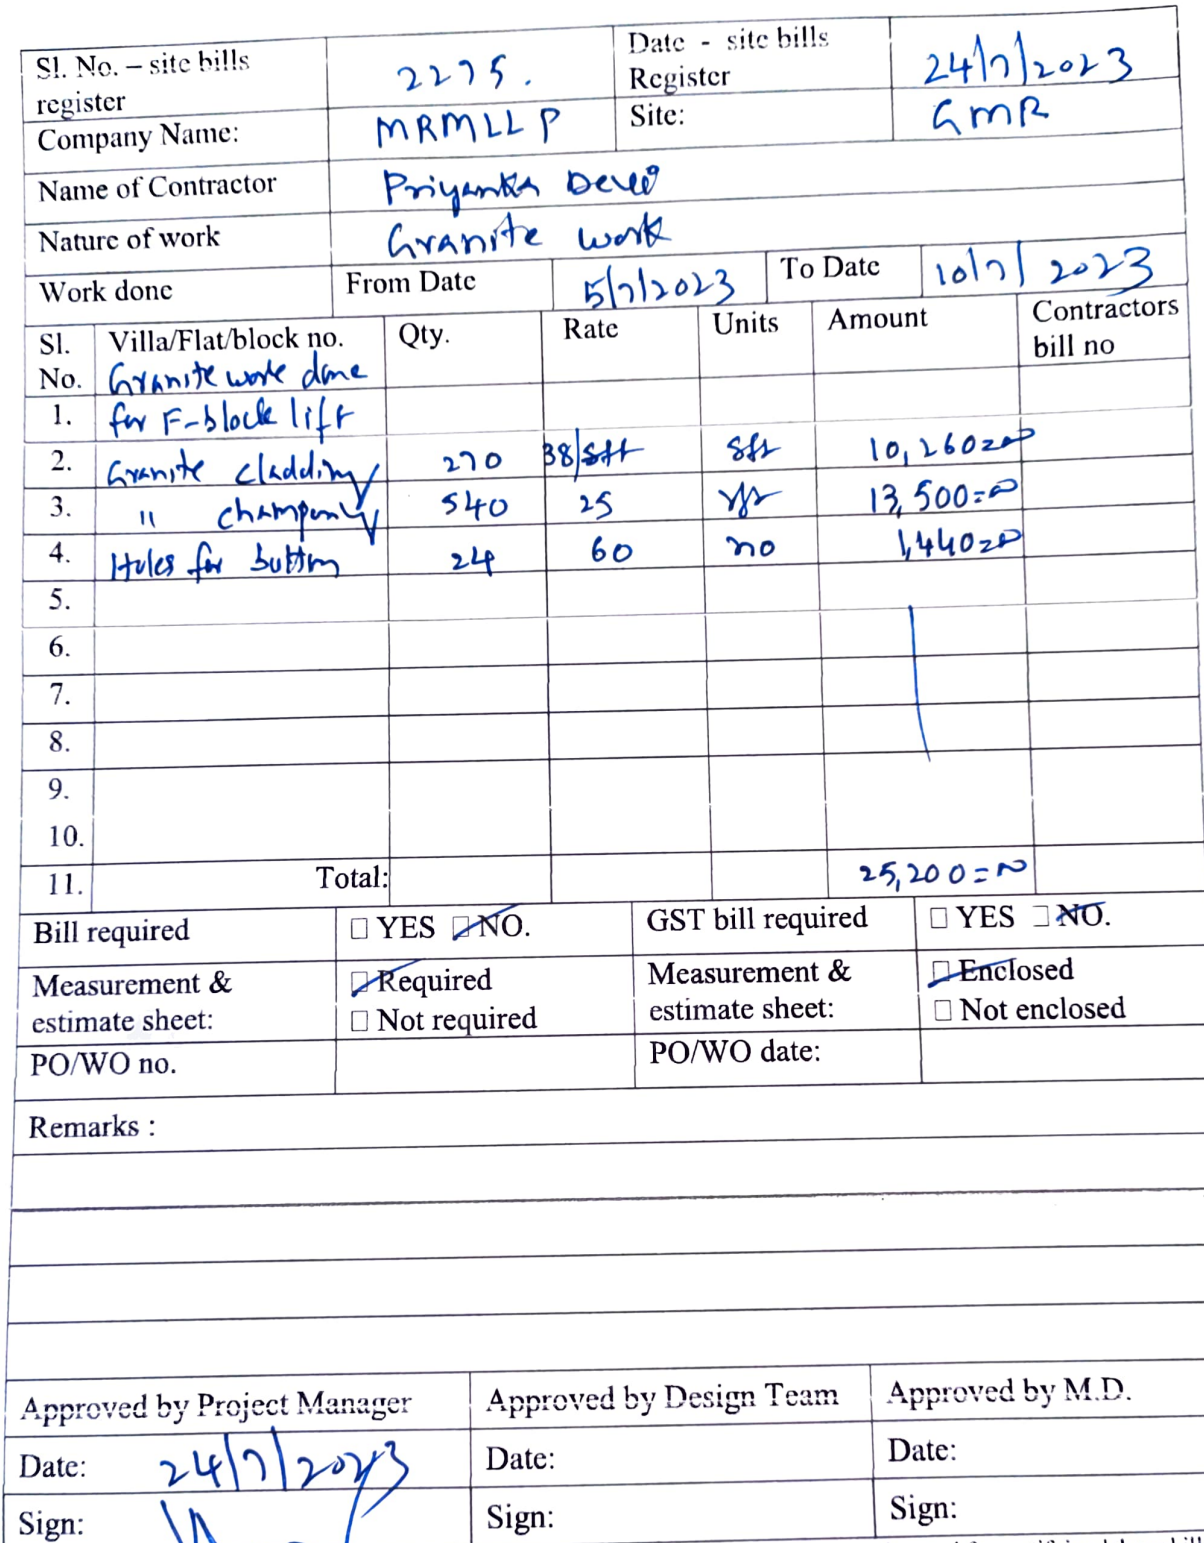 Sl. No. – site bills register 2275. Date - site bills Register 24/7/2023
Company Name: MRMLLP Site: GMR
Name of Contractor Priyanka Devi
Nature of work Granite work
Work done From Date 5/7/2023 To Date 10/7/2023
Sl. No. Villa/Flat/block no. Qty. Rate Units Amount Contractors bill no
Granite work done
1. for F-block lift
2. Granite cladding 270 38/sft sft 10,260=00
3. " champering 540 25 13,500=00
4. Holes for button 24 60 no 1,440=00
5.
6.
7.
8.
9.
10.
11. Total: 25,200=00
Bill required □ YES □ NO. GST bill required □ YES □ NO.
Measurement & estimate sheet: □ Required □ Not required Measurement & estimate sheet: □ Enclosed □ Not enclosed
PO/WO no. PO/WO date:
Remarks :
Approved by Project Manager Approved by Design Team Approved by M.D.
Date: 24/7/2023 Date: Date:
Sign: Sign: Sign: